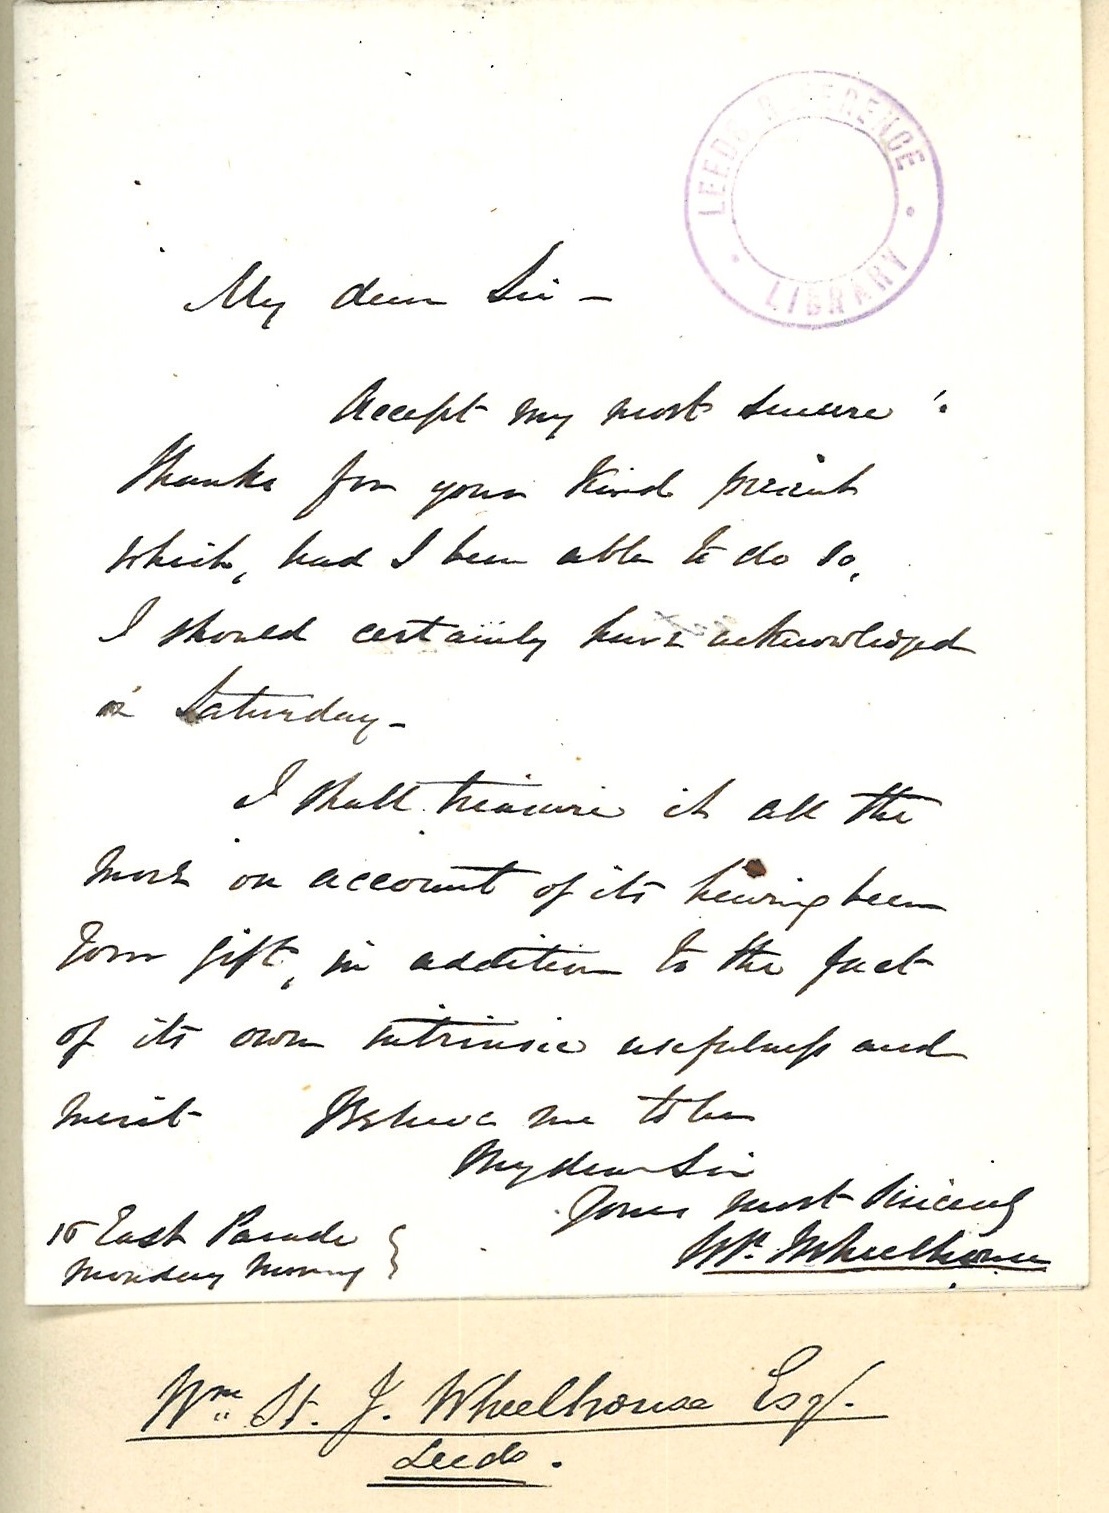 LEEDS REFERENCE LIBRARY
My dear Sir –
Accept my most sincere
thanks for your kind present
which, had I been able to do so,
I should certainly have acknowledged
on Saturday –
I shall treasure it all the
more on account of its having been
your gift, in addition to the fact
of its own intrinsic usefulness and
merit Believe me to be
My dear Sir
Yours most sincerely
Wm. Wheelhouse
15 East Parade
Monday Morning
Wm. St. J. Wheelhouse Esq.
Leeds.